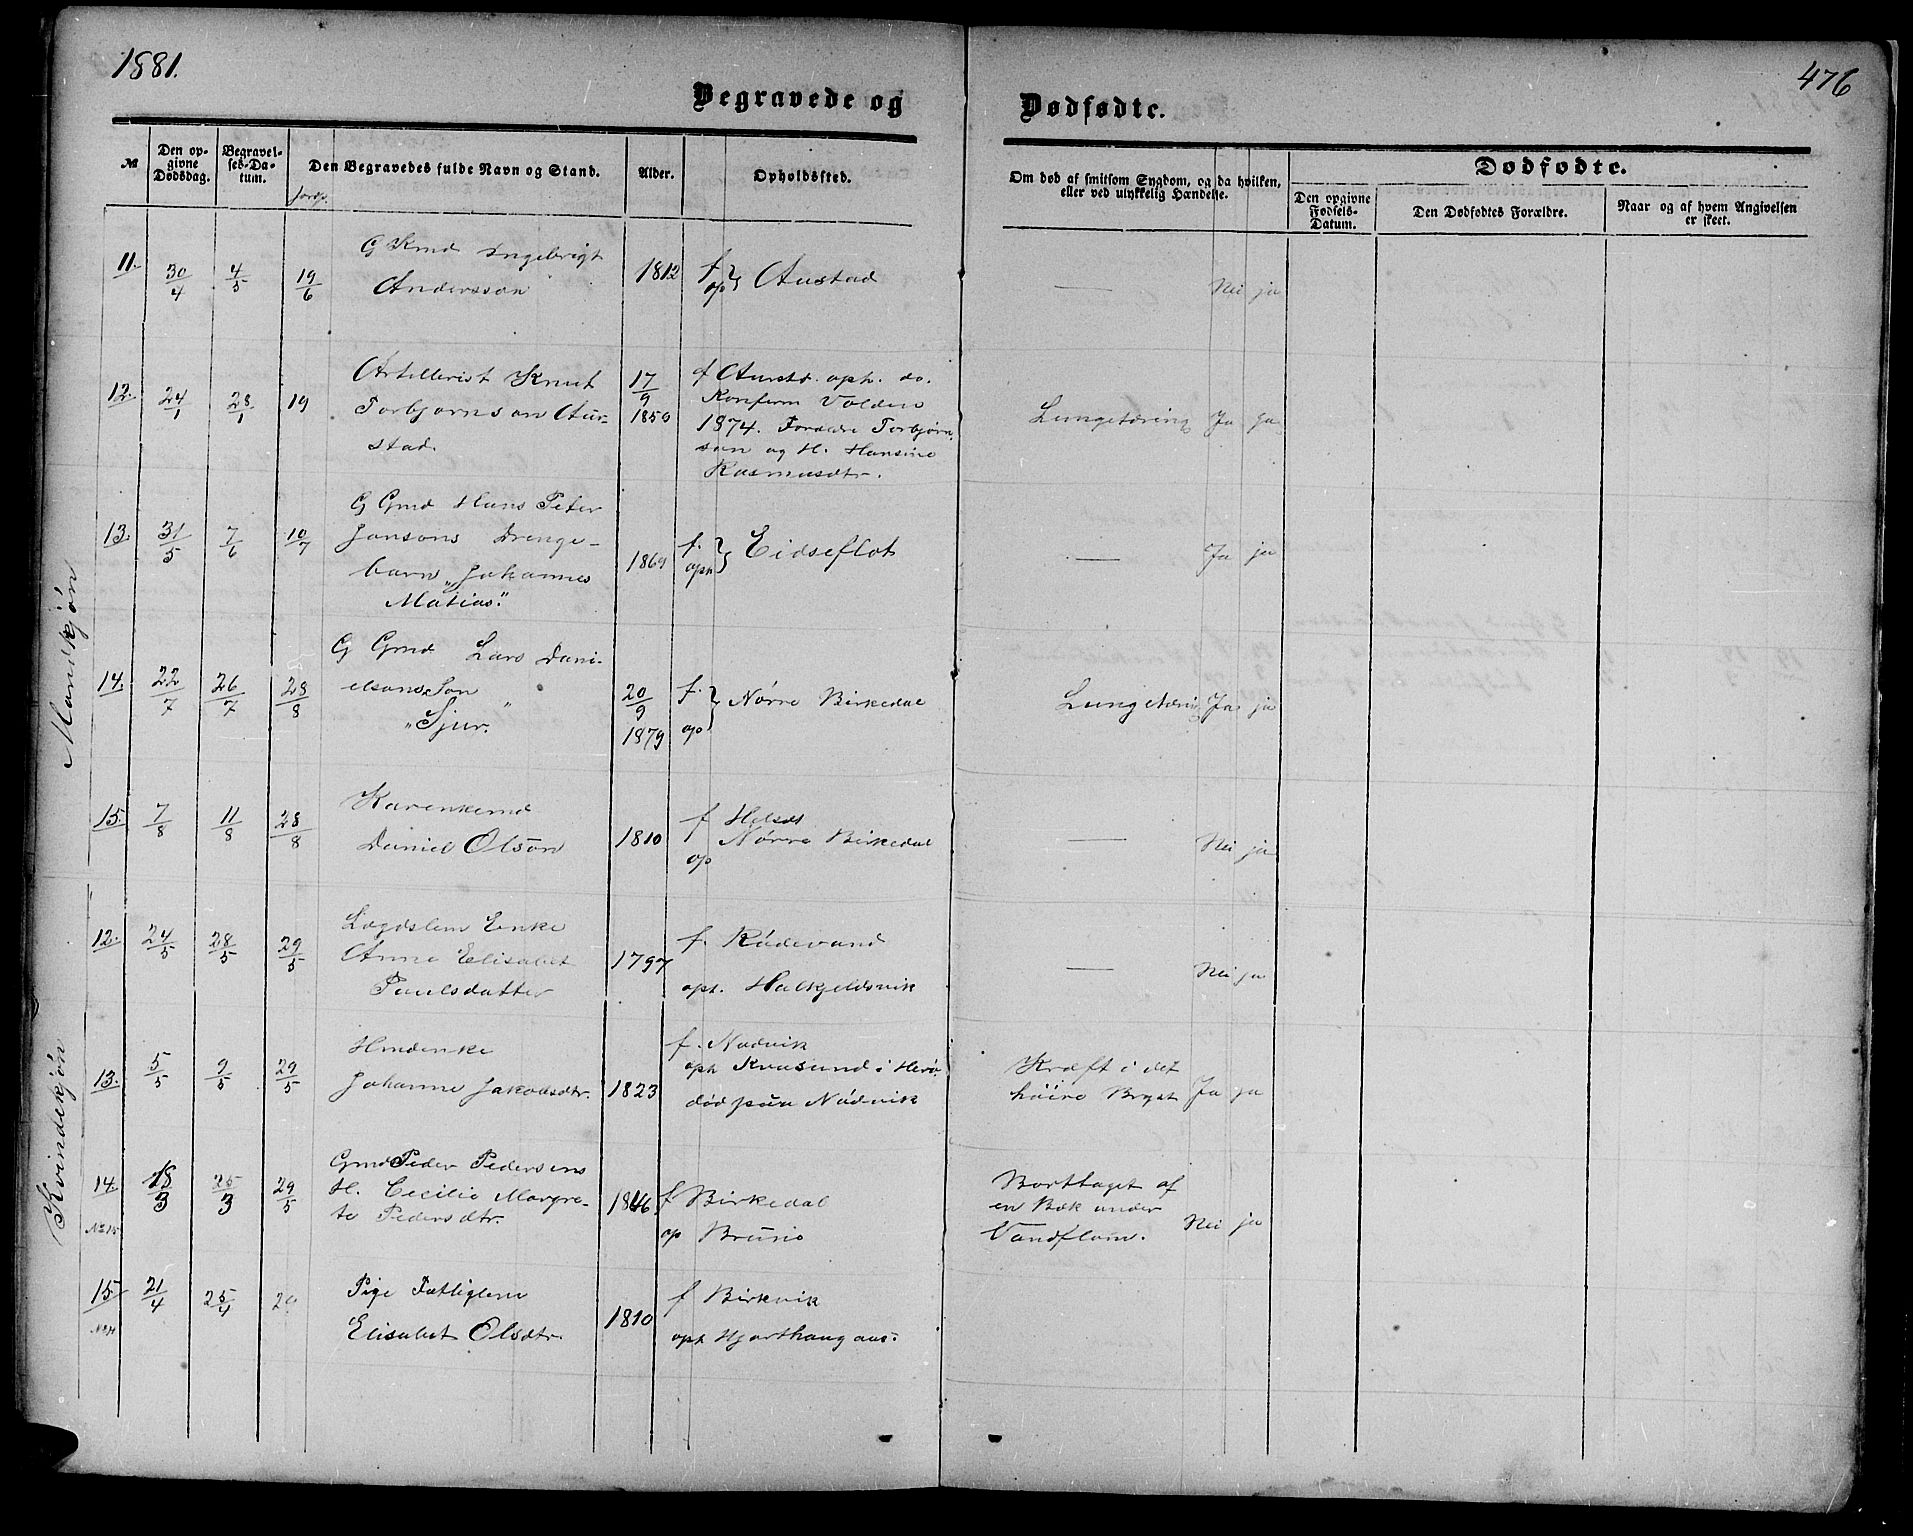 1881.
476
Begravede og Dødfødte.
№
Den op-
givne
Dødsdag.
Begravel-
ses-Da-
tum.
Jordp.
Den Begravedes fulde Navn og Stand.
Alder.
Opholdssted.
Om død af smitsom Sygdom, og da hvilken,
eller ved ulykkelig Hændelse.
Dødfødte.
Den opgivne
Fødsels-
Datum.
Den Dødfødtes Forældre.
Naar og af hvem Angivelsen
er skeet.
Mandkjøn
11. 30/4 4/5 19/6 G Kmd Ingebrigt
Andersson 1812 f op } Austad — Nei ja
12. 24/1 28/1 19 Artillerist Knut
Torbjørnson Aur-
stad. 17/9 1850
f Aurstd. oph. do.
Konferm Volden
1874. Foreldre Torbjørn
son og H. Hansine
Rasmusdtr.
Lungetæring Ja ja
13. 31/5 7/6 10/7 G Gmd Hans Peter
Jansons Drenge-
barn „Johannes
Matias." 1869 f. oph } Eidseflot — Ja ja
14. 22/7 26/7 28/8 G Gmd Lars Dani-
elsons Søn
„Sjur." 20/9 1879 f. op } Nørre Birkedal Lungetæring Ja ja
15. 7/8 11/8 28/8 Karenkemd
Daniel Olson 1810 f Helset
op Nørre Birkedal — Nei ja
Kvindekjøn
12. 24/5 28/5 29/5 Lægdslem Enke
Anne Elisabet
Paulsdatter 1797 f. Rødevand
oph. Halkjeldsvik — Nei ja
13. 5/5 9/5 29/5 Hmdenke
Johanne Jakobsdtr. 1823 f. Nødvik
oph Kvasund i Herø.
død paa Nødvik
Kræft i det
høire Bryst Ja ja
14. 18/3 25/3 29/5 Gmd Peder Pedersens
H. Cecilie Margre-
te Pedersdtr. 1846 f Birkedal
op Brune
Borttaget af
en Bæk under
Vandflom. Nei ja
No 15
15 21/4 25/4 29 Pige Fattiglem
Elisabet Olsdtr. 1810 f Birkvik
oph Hjorthaug aus: